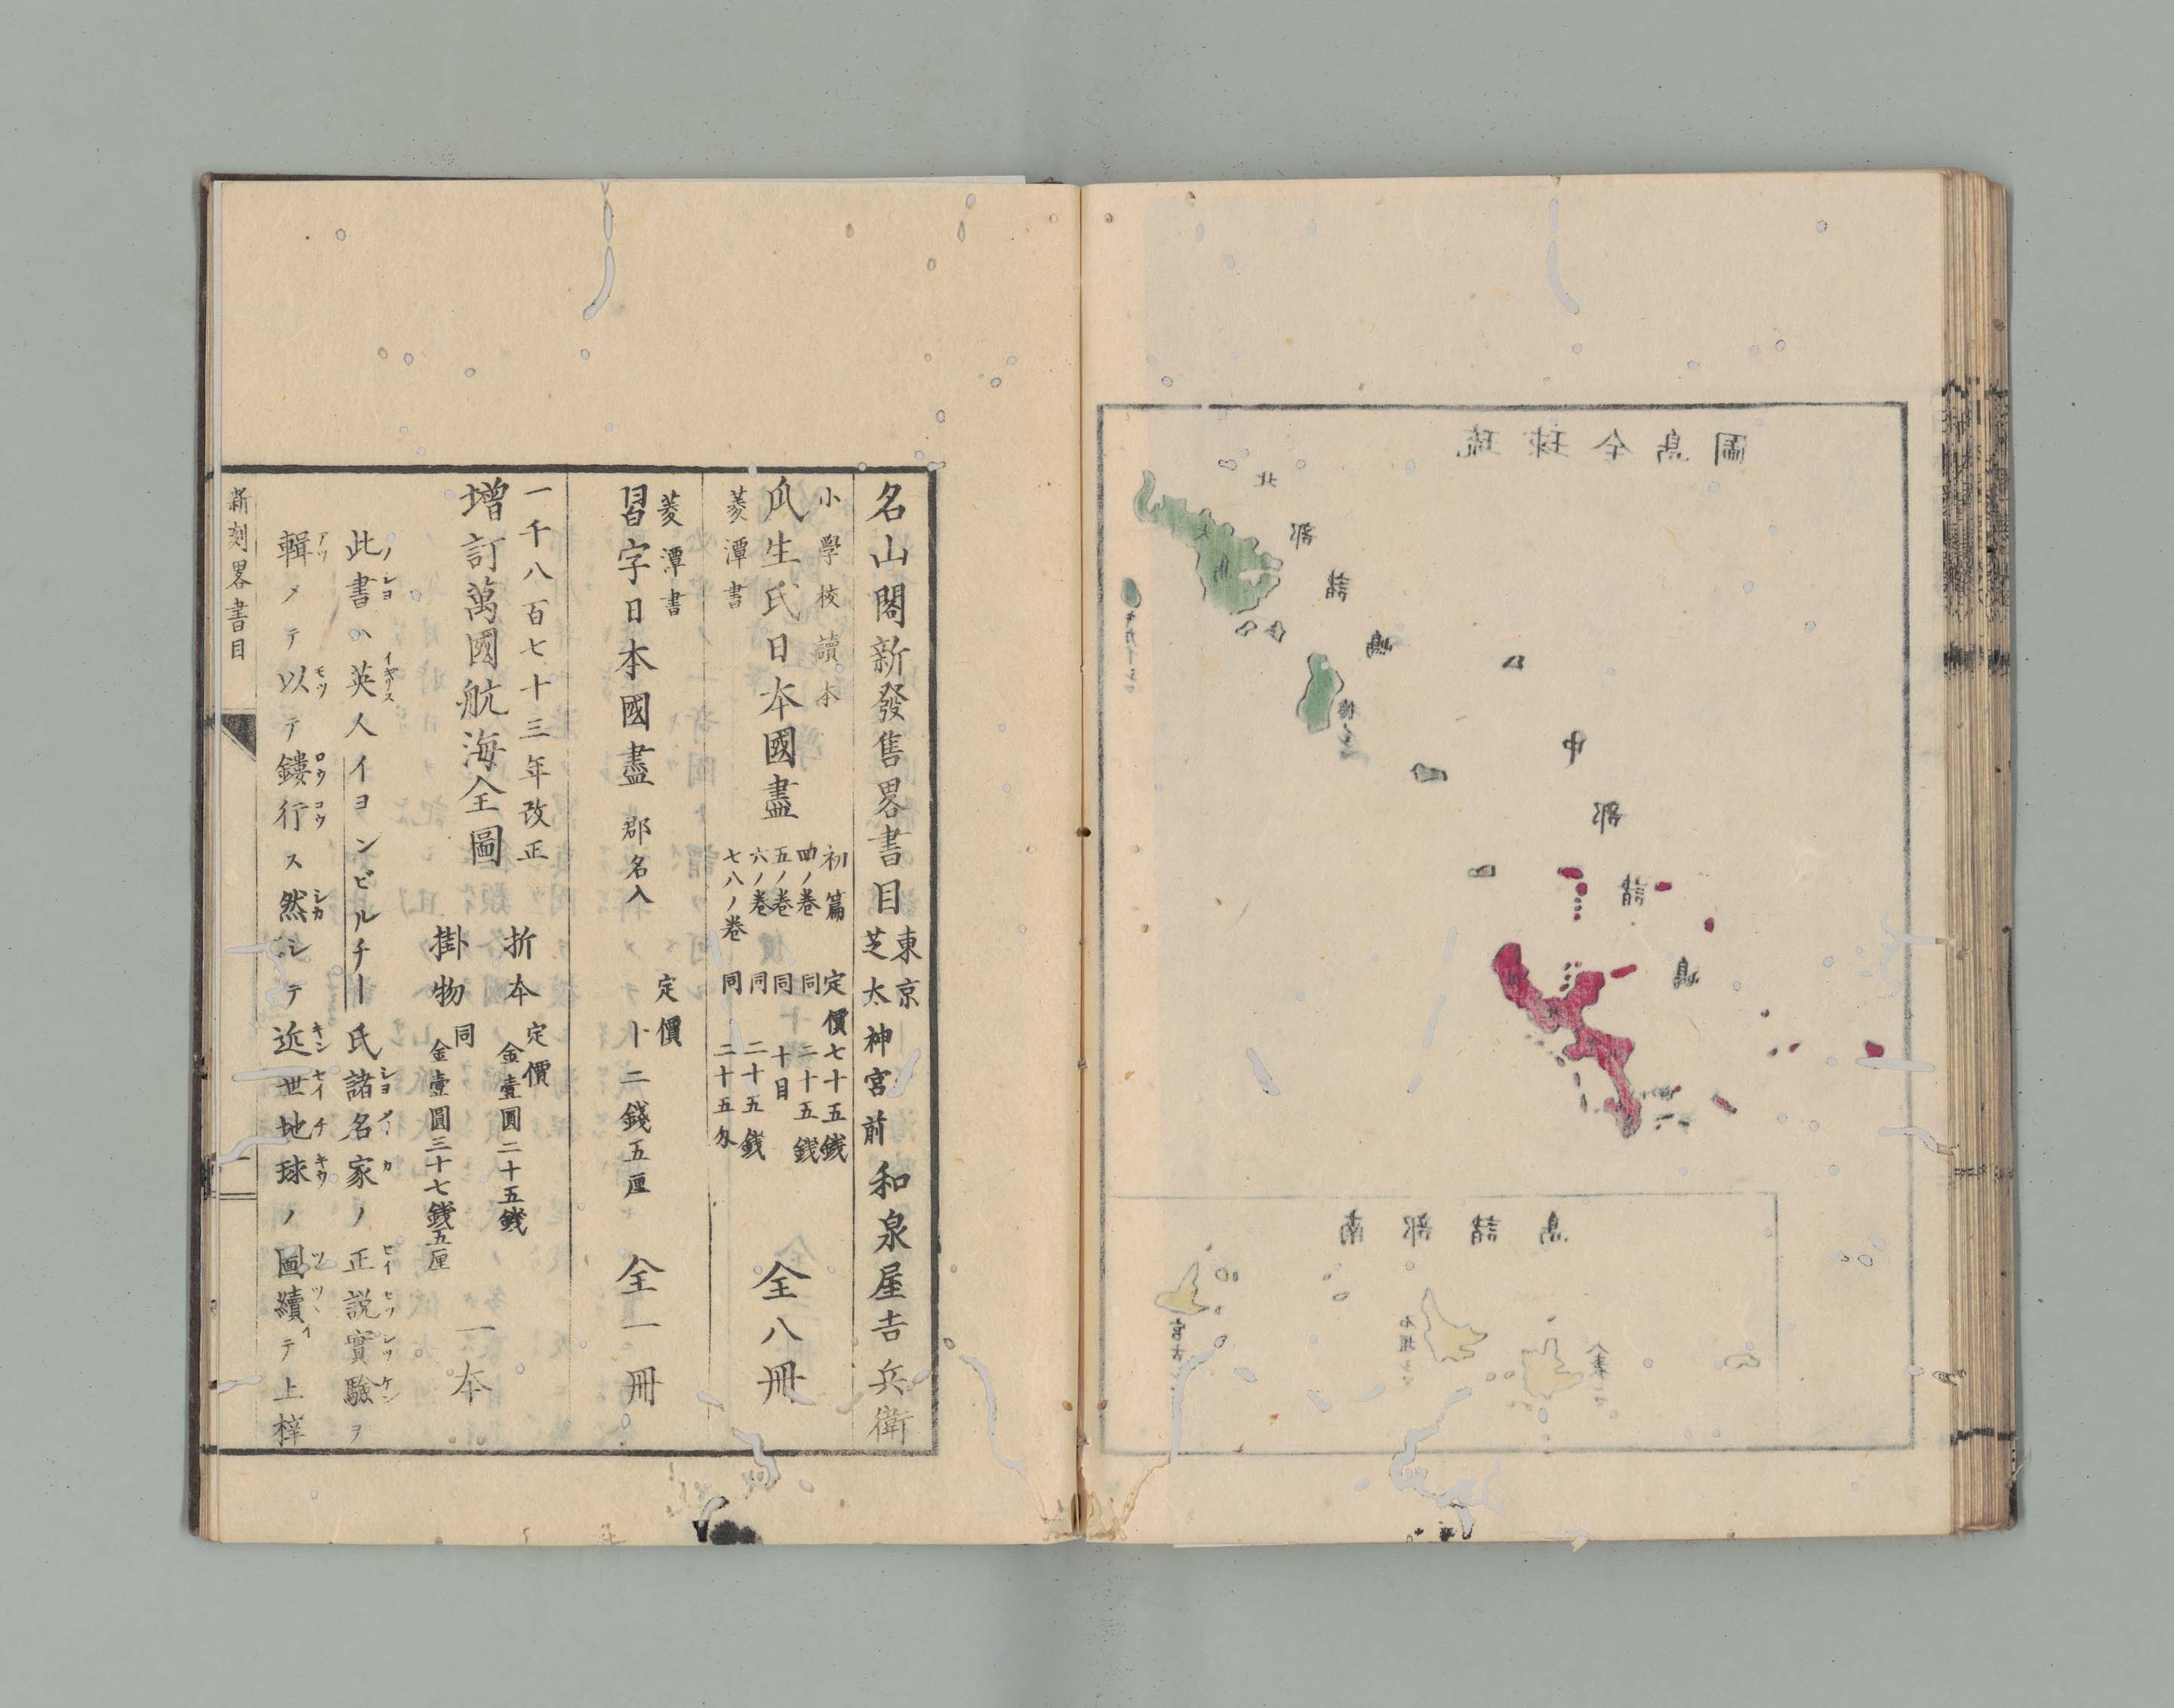 圖島全球琉
北
部
諸
嶋
中
部
諸
嶋
島諸部南
宮古
石垣シマ
八重シマ
名山閣新發售畧書目 東京芝太神宮前 和泉屋吉兵衛
小學校讀本
瓜生氏日本國盡 全八冊
菱潭書
初篇 定價七十五錢
四ノ巻 同二十五錢
五ノ巻 同十目
六ノ巻 同二十五錢
七八ノ巻 同二十五匁
菱潭書
習字日本國盡 郡名入 定價十二錢五厘 全一冊
一千八百七十三年改正
增訂萬國航海全圖 一本
折本 定價金壹圓二十五錢
掛物 同金壹圓三十七錢五厘
此書ハ英人イヨンビルチー氏諸名家ノ正説實驗ヲ
輯メテ以テ鏤行ス然シテ近世地球ノ圖續テ上梓
新刻畧書目